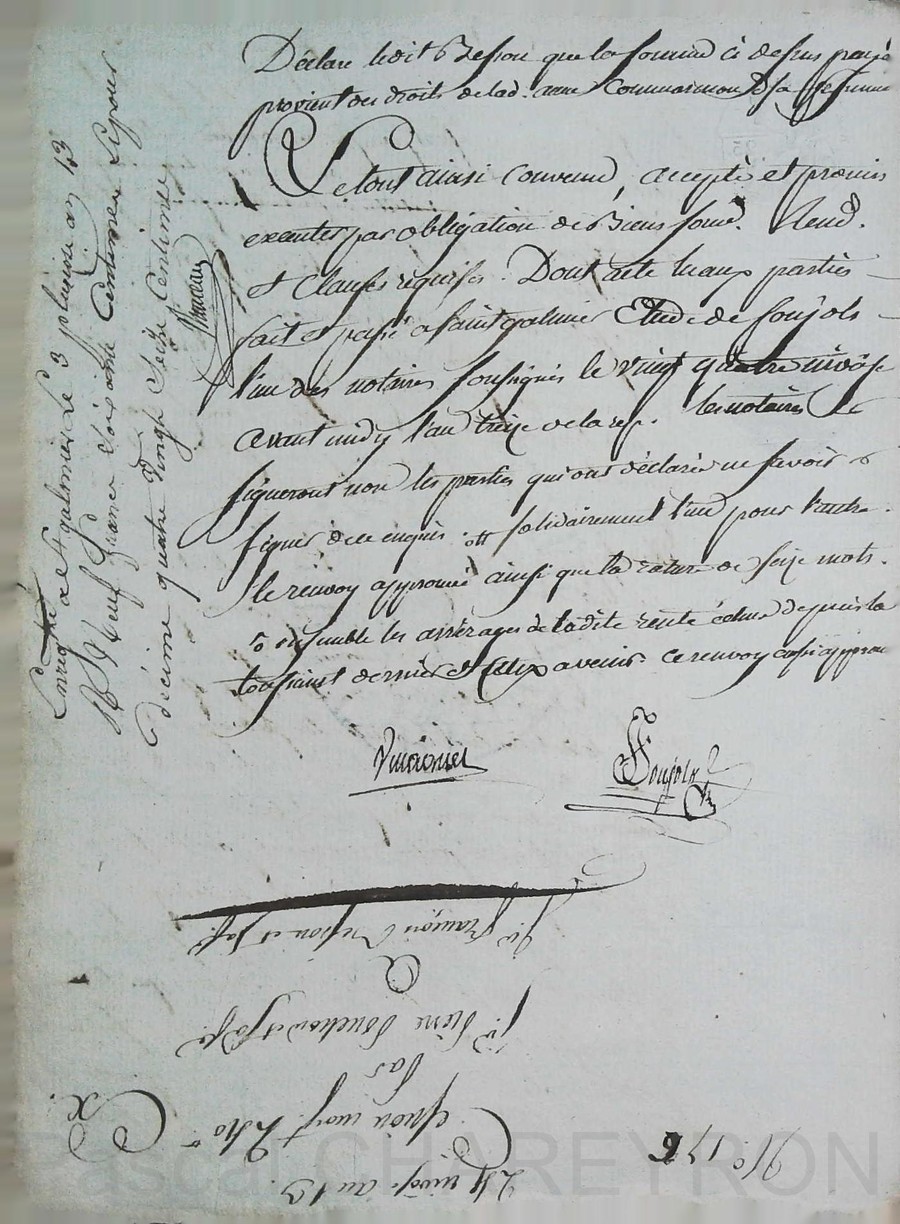 Déclare ledit Besson que la somme ci dessus payée
provient des droits de lad. Commarmond sa femme
Le tout ainsi convenu, accepté et promis
executer par obligation de Biens soum. Rend.
et Clauses requises. Dont acte luaux parties
fait et passé a saint galmier Etude de soujols
l'un des notaires soussignés le vingt quatre nivose
avant midy l'an treize de la rep. les notaires
signeront non les parties qui ont déclaré ne savoir
signer de ce enquis. solidairement l'un pour l'autre.
le renvoy approuvé ainsi que la rature de seize mots.
ensemble les arrérages de la dite rente échue depuis la
toussaint dernier et ceux a venir. ce renvoy aussi approu
Soujols
Enreg. tré a St galmier Le 3 pluviose an 13
R Neuf francs soixante Centimes
décime quatre Vingt Seize Centimes
No 176
24 nivose an 13.
par
Sr. Pierre et sa fe
A
Sr. françois Besson et sa fe